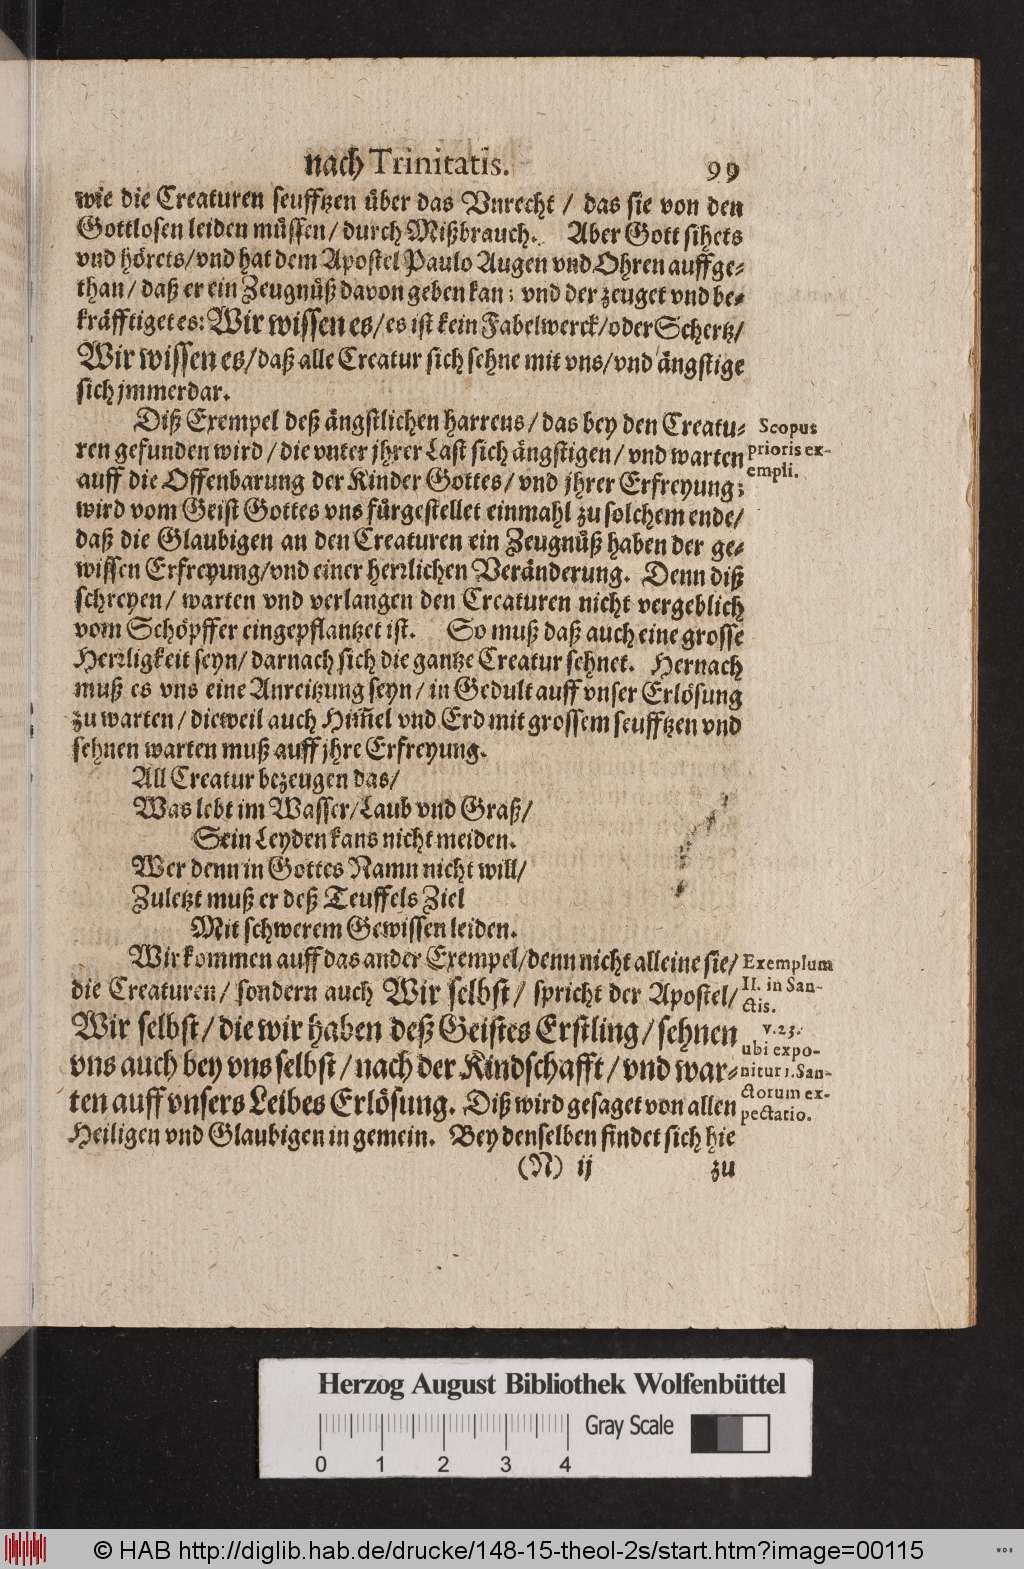 nach Trinitatis. 99
wie die Creaturen seufftzen über das Vnrecht / das sie von den
Gottlosen leiden müssen / durch Mißbrauch. Aber Gott sihets
vnd hörets / vnd hat dem Apostel Paulo Augen vnd Ohren auffge-
than / daß er ein Zeugnüß davon geben kan; vnd der zeuget vnd be-
kräfftiget es: Wir wissen es / es ist kein Fabelwerck / oder Schertz /
Wir wissen es / daß alle Creatur sich sehne mit vns / vnd ängstige
sich jmmerdar.
Diß Exempel deß ängstlichen harrens / das bey den Creatu-
ren gefunden wird / die vnter jhrer Last sich ängstigen / vnd warten
auff die Offenbarung der Kinder Gottes / vnd jhrer Erfreyung;
wird vom Geist Gottes vns fürgestellet einmahl zu solchem ende /
daß die Glaubigen an den Creaturen ein Zeugnüß haben der ge-
wissen Erfreyung / vnd einer herrlichen Veränderung. Denn diß
schreyen / warten vnd verlangen den Creaturen nicht vergeblich
vom Schöpffer eingepflantzet ist. So muß daß auch eine grosse
Herrligkeit seyn / darnach sich die gantze Creatur sehnet. Hernach
muß es vns eine Anreitzung seyn / in Gedult auff vnser Erlösung
zu warten / dieweil auch Him̃el vnd Erd mit grossem seufftzen vnd
sehnen warten muß auff jhre Erfreyung.
Scopus
prioris ex-
empli.
All Creatur bezeugen das /
Was lebt im Wasser / Laub vnd Graß /
Sein Leyden kans nicht meiden.
Wer denn in Gottes Namn nicht will /
Zuletzt muß er deß Teuffels Ziel
Mit schwerem Gewissen leiden.
Wir kommen auff das ander Exempel / denn nicht alleine sie /
die Creaturen / sondern auch Wir selbst / spricht der Apostel /
Wir selbst / die wir haben deß Geistes Erstling / sehnen
vns auch bey vns selbst / nach der Kindschafft / vnd war-
ten auff vnsers Leibes Erlösung. Diß wird gesaget von allen
Heiligen vnd Glaubigen in gemein. Bey denselben findet sich hie
Exemplum
II. in San-
ctis.
v. 23.
ubi expo-
nitur 1. San-
ctorum ex-
pectatio.
(N) ij zu
Herzog August Bibliothek Wolfenbüttel
Gray Scale
0 1 2 3 4
© HAB http://diglib.hab.de/drucke/148-15-theol-2s/start.htm?image=00115